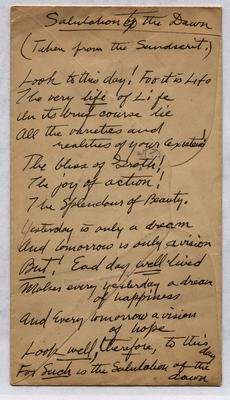 Salutation of the Dawn
(Taken from the Sandscrit.)
Look to this day! For it is Life
The very life of Life
In its brief course lie
All the varieties and
realities of your Existence!
The bliss of Groth!
The joy of action!
The Splendour of Beauty.
Yesterday is only a dream
And tomorrow is only a vision
But! Each day well lived
Makes every yesterday a dream
of happiness
And Every tomorrow a vision
of hope
Look well, therefore, to this
day
For Such is the Salutation of the
dawn